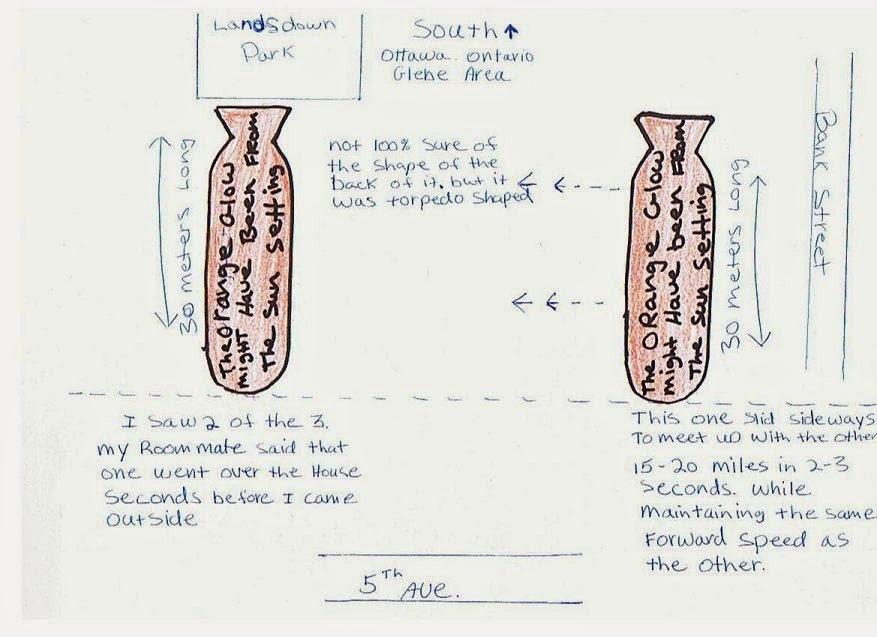 Landsdown
Park
South
Ottawa. Ontario
Glebe Area
not 100% sure of
the shape of the
back of it, but it
was torpedo shaped
30 meters Long
The orange Glow
might Have Been From
The Sun Setting
The ORange Glow
might Have been From
The Sun Setting
30 meters Long
Bank Street
I Saw 2 of the 3.
my Roommate said that
one went over the House
Seconds before I came
outside
This one slid sideways
To meet up with the other
15-20 miles in 2-3
seconds. while
maintaining the same
Forward speed as
the other.
5Th Ave.